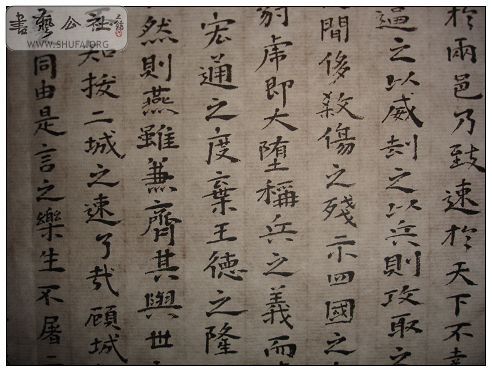 於兩邑乃致速於天下不幸
逼之以威劫之以兵則攻取之
間侈殺傷之殘示四國之
豺虎即大墮稱兵之義而
宏通之度棄王德之隆
然則燕雖兼齊其與世
知拔二城之速了哉顧城
同由是言之樂生不屠
書藝公社
WWW.SHUFA.ORG